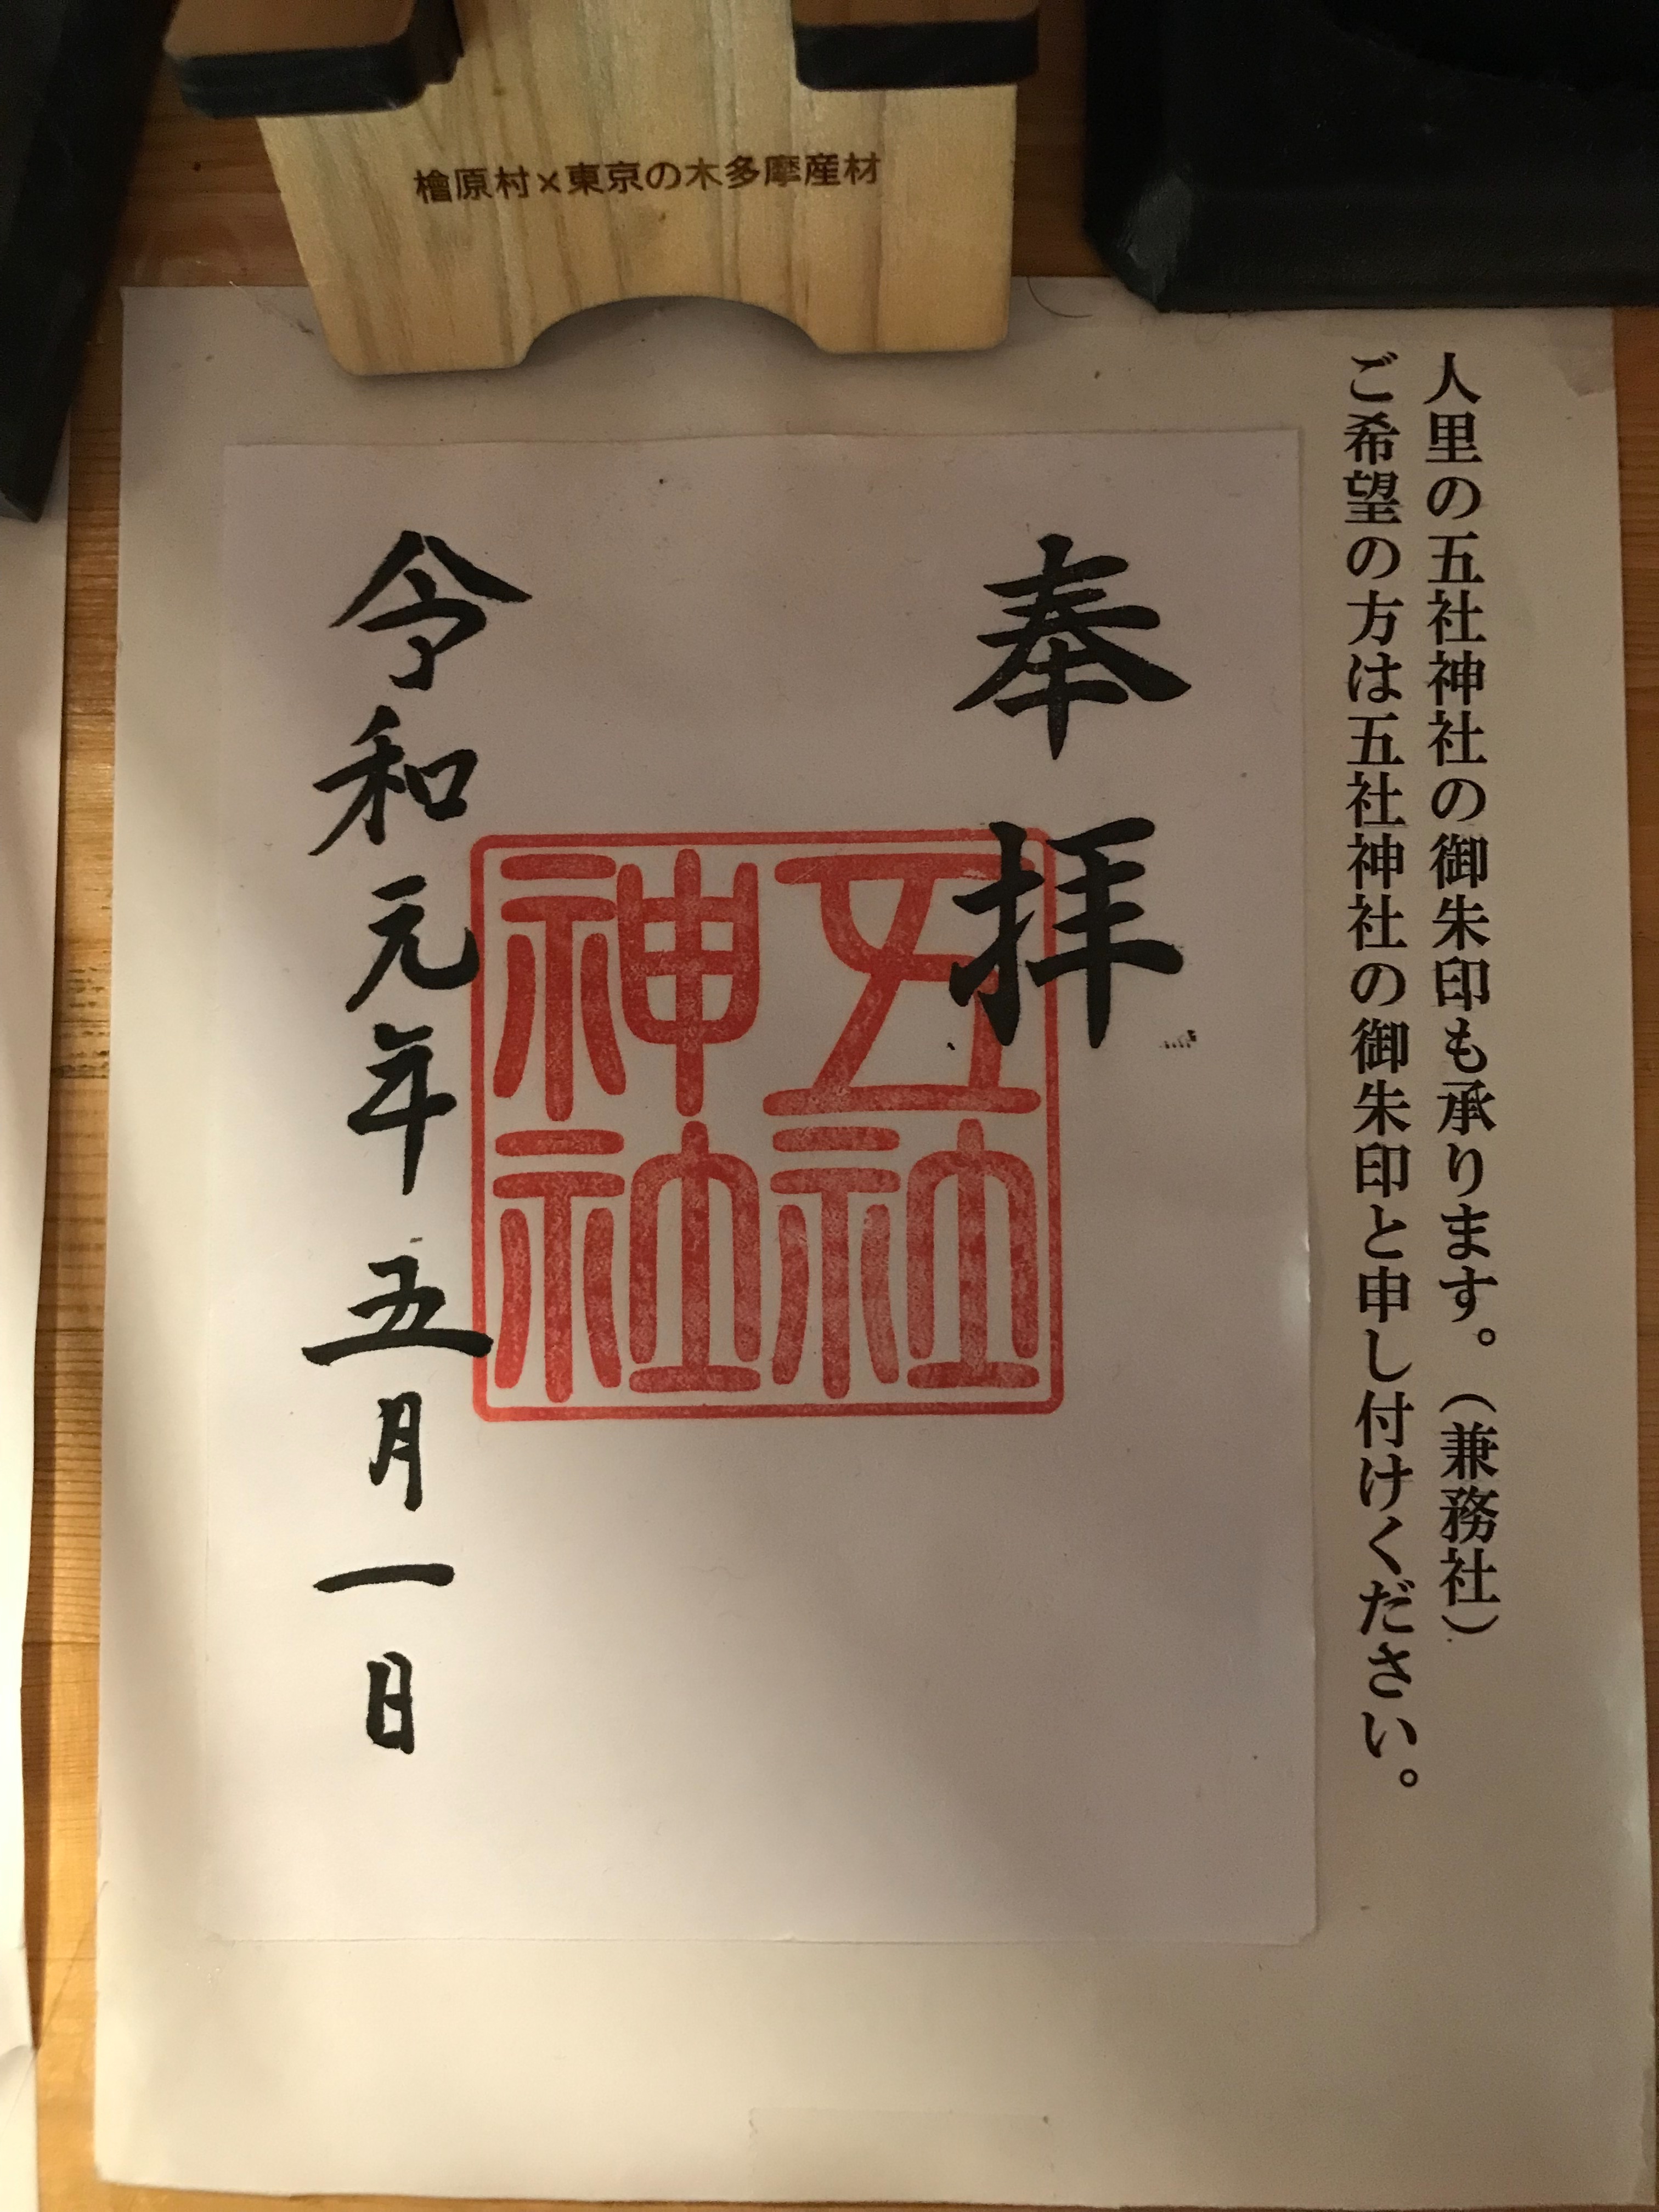 檜原村×東京の木多摩産材
人里の五社神社の御朱印も承ります。（兼務社）
ご希望の方は五社神社の御朱印と申し付けください。
奉拝
五社
神社
令和元年五月一日